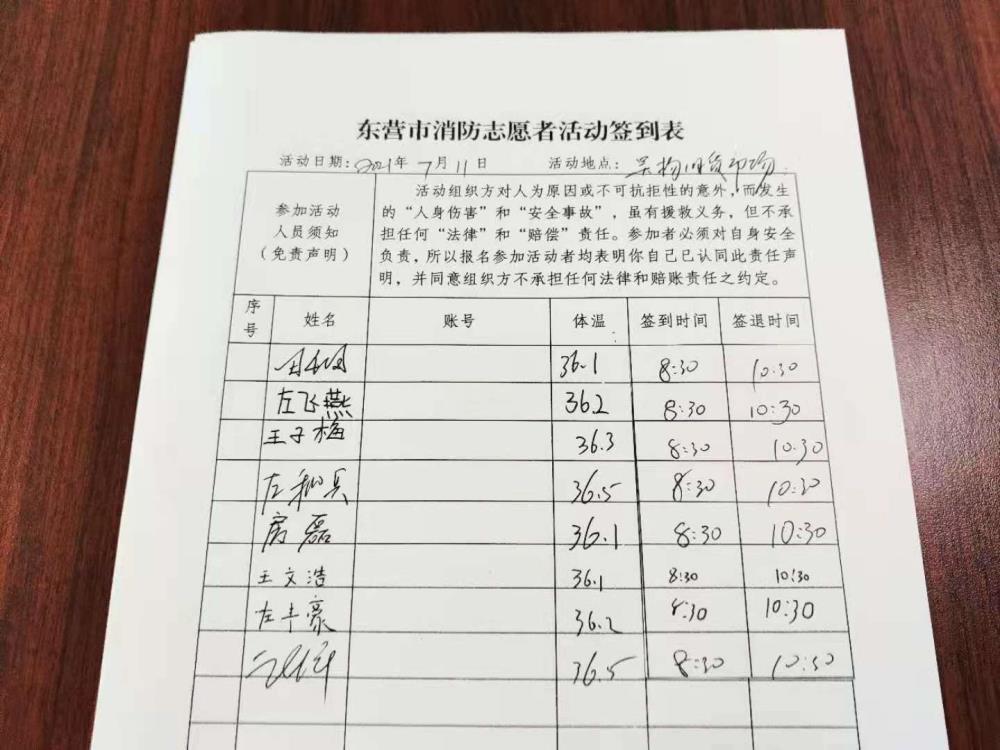 东营市消防志愿者活动签到表
活动日期：2021年7月11日 活动地点：
参加活动
人员须知
（免责声明）
活动组织方对人为原因或不可抗拒性的意外，而发生
的“人身伤害”和“安全事故”，虽有援救义务，但不承
担任何“法律”和“赔偿”责任。参加者必须对自身安全
负责，所以报名参加活动者均表明你自己已认同此责任声
明，并同意组织方不承担任何法律和赔账责任之约定。
序号 姓名 账号 体温 签到时间 签退时间
36.1 8:30 10:30
左飞燕 36.2 8:30 10:30
王子梅 36.3 8:30 10:30
左 36.5 8:30 10:30
房磊 36.1 8:30 10:30
王文浩 36.1 8:30 10:30
左丰豪 36.2 8:30 10:30
36.5 8:30 10:30